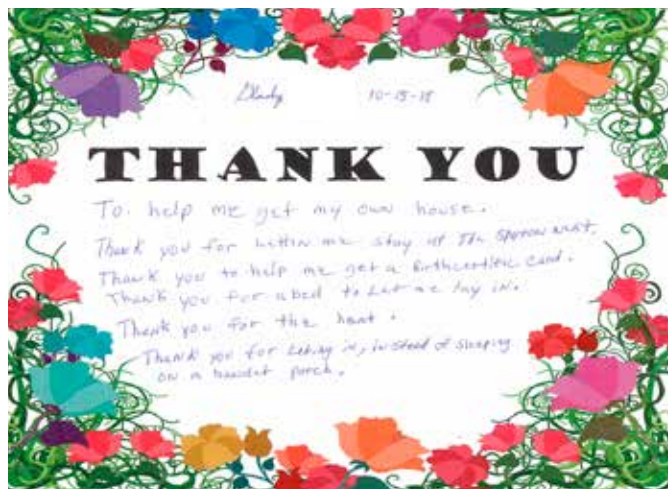 10-15-15
THANK YOU
To help me get my own house.
Thank you for lettin me stay at The Sparrow nest.
Thank you to help me get a Birthcertific card.
Thank you for a bed to let me lay in.
Thank you for the heat.
Thank you for Leting in, instead of sleeping
on a porch.